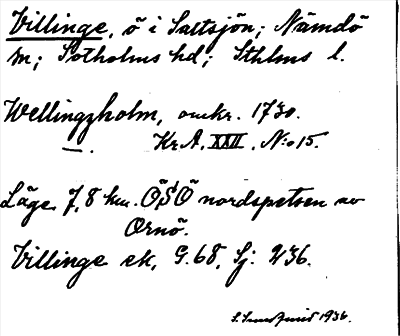 Villinge, ö i Saltsjön; Nämdö
sn; Sotholms hd; Sthlms l.
Wellingzholm, omkr. 1730.
—. Kr.A. XXII. N:o 15.
Läge. 7,8 km. ÖSÖ nordspetsen av
Ornö.
Villinge ek, G. 68, Sj: 236.
1936.